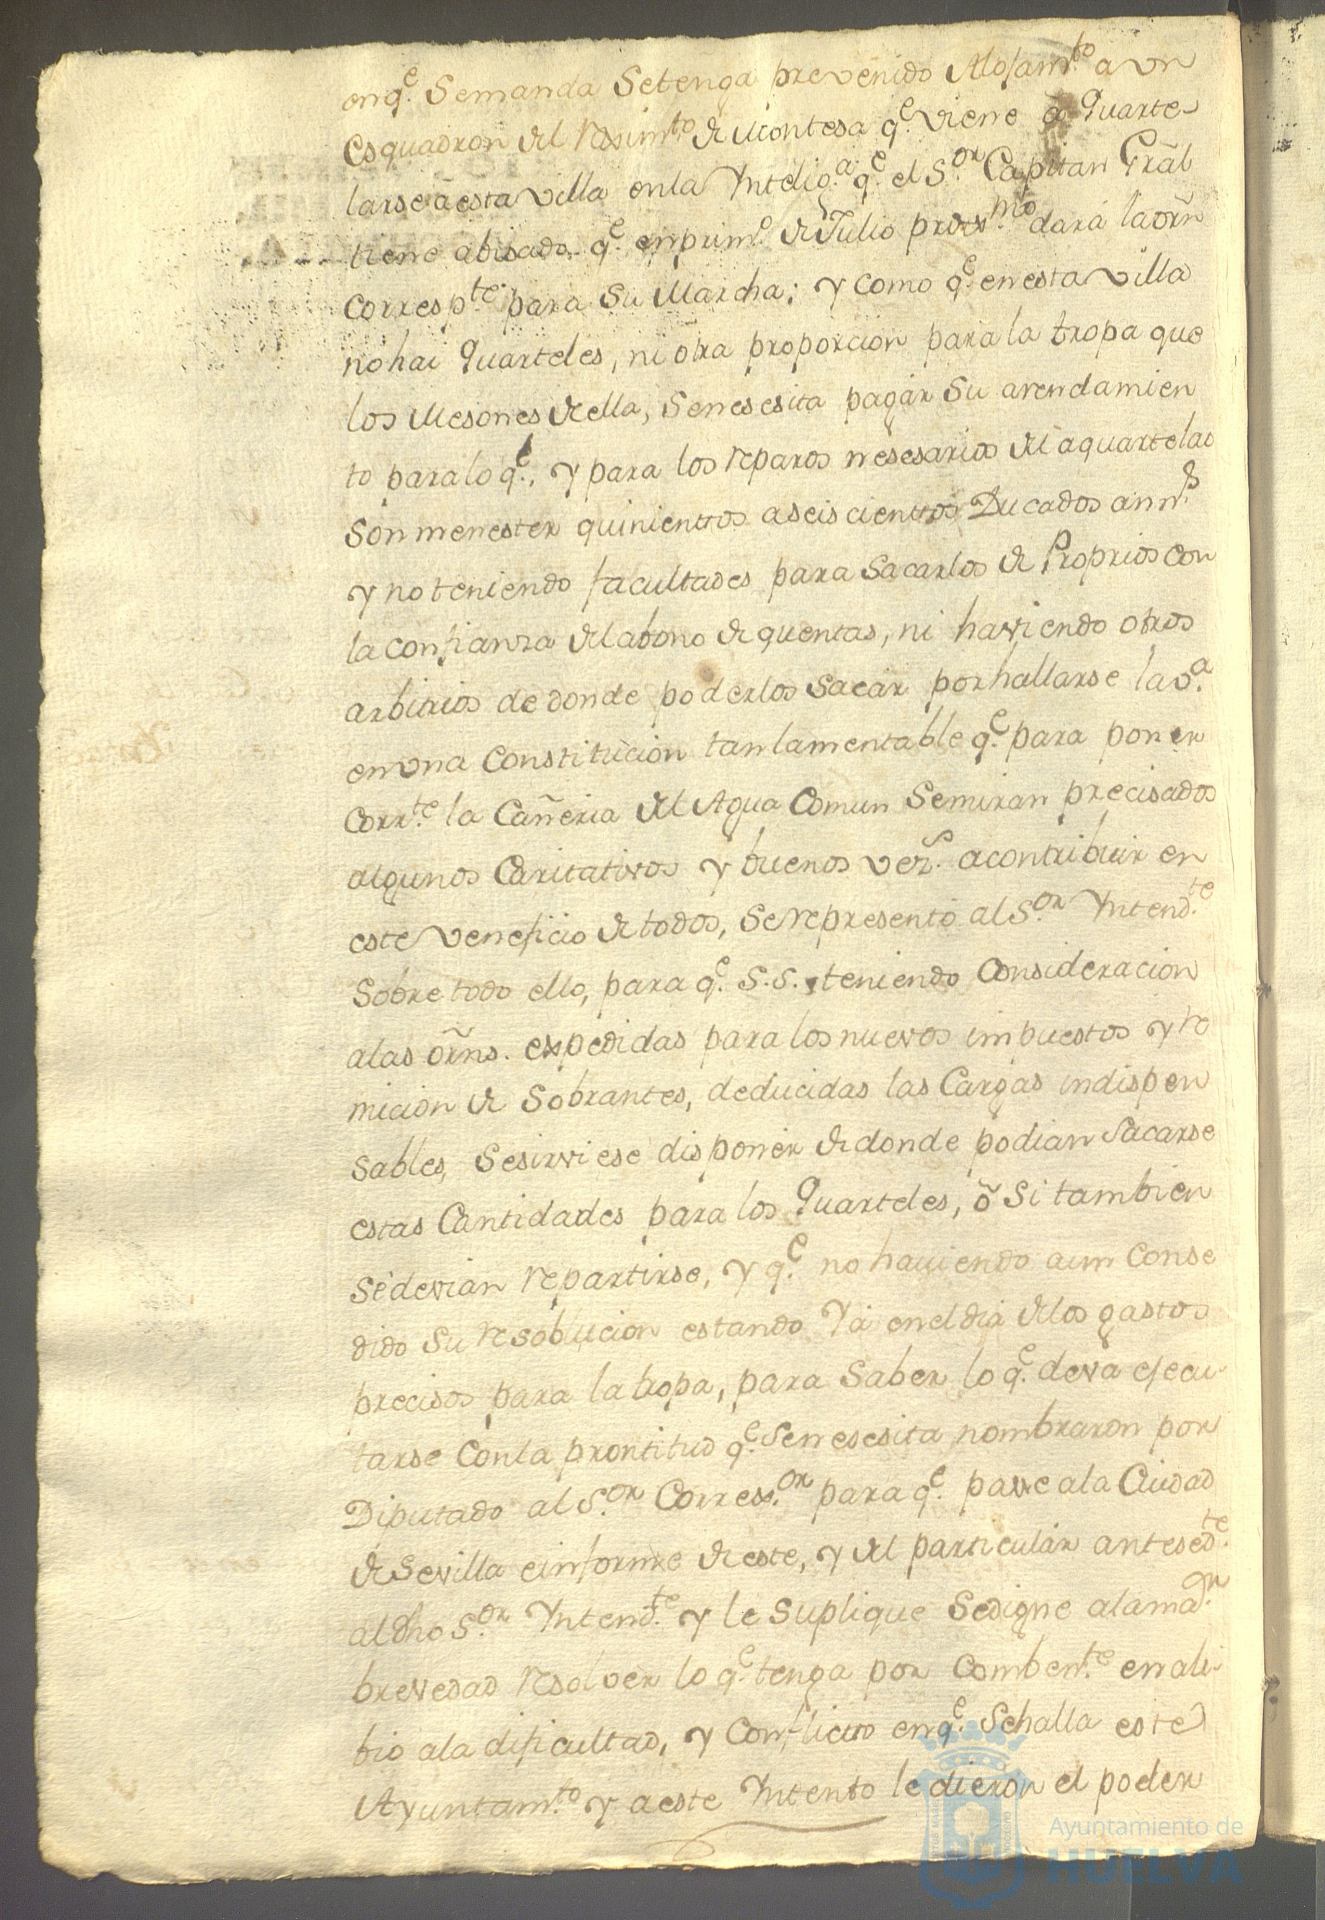 enq.e Semanda Setenga prevenido Alojam.to a vn
Esquadron del Reximto de Montesa q.e viene â Quarte-
larse âesta villa enla Yntelig.a q.e el S.or Capitan Gral
tiene abisado q.e enprim.o de Julio proxmo dará laorñ
Corresp.te para Su Marcha; y como q.e enesta villa
nohai Quarteles, ni ôtra proporcion para la tropa que
los Mesones de ella, Senesesita pagar Su arendamien
to paralo q.e, y para los reparos nesesarios del aquartelado
Son menester quinientos aseiscientos Ducados
y no teniendo facultades para Sacarlos de Proprios con
la confianza del abono de quentas, ni haviendo otros
arbitrios de donde poderlos Sacar porhallarse la v.a
en vna Constitucion tanlamentable q.e para poner
Corr.te la Cañeria del Agua Comun Semiran precisados
algunos Caritativos y buenos vez.s acontribuir en
este veneficio de todos, Se represento al S.or Yntend.te
Sobre todo ello, para q.e S.S. teniendo Consideracion
alas orñs. expedidas para los nuevos impuestos y re
micion de Sobrantes, deducidas las Cargas indispen
sables, Sesirviese disponer de donde podian Sacarse
estas Cantidades para los Quarteles, ô Si tambien
Sedevian repartirse, y q.e no haviendo aun Conse
dido Su resolucion estando Ya eneldia delos gastos
precisos para la tropa, para Saber lo q.e deva ejecu-
tarse Conla prontitud q.e Senesesita nombraron por
Diputado al S.or Correx.or para q.e pase ala Ciudad
de Sevilla e informe de este, y del particular antesed.te
al dho S.or Yntend.te y le Suplique Sedigne alama.or
brevedad resolver lo q.e tenga por Comben.te en ali-
bio ala dificultad, y Conflicto enq.e Sehalla este
Ayuntam.to y aeste Yntento le dieron el poder
Ayuntamiento de
HUELVA